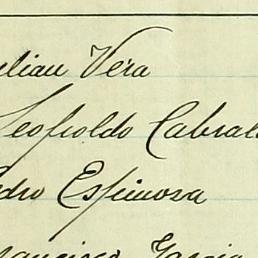 elian Vera
Leopoldo Cabral
edro Espinosa
rancisco Garcia